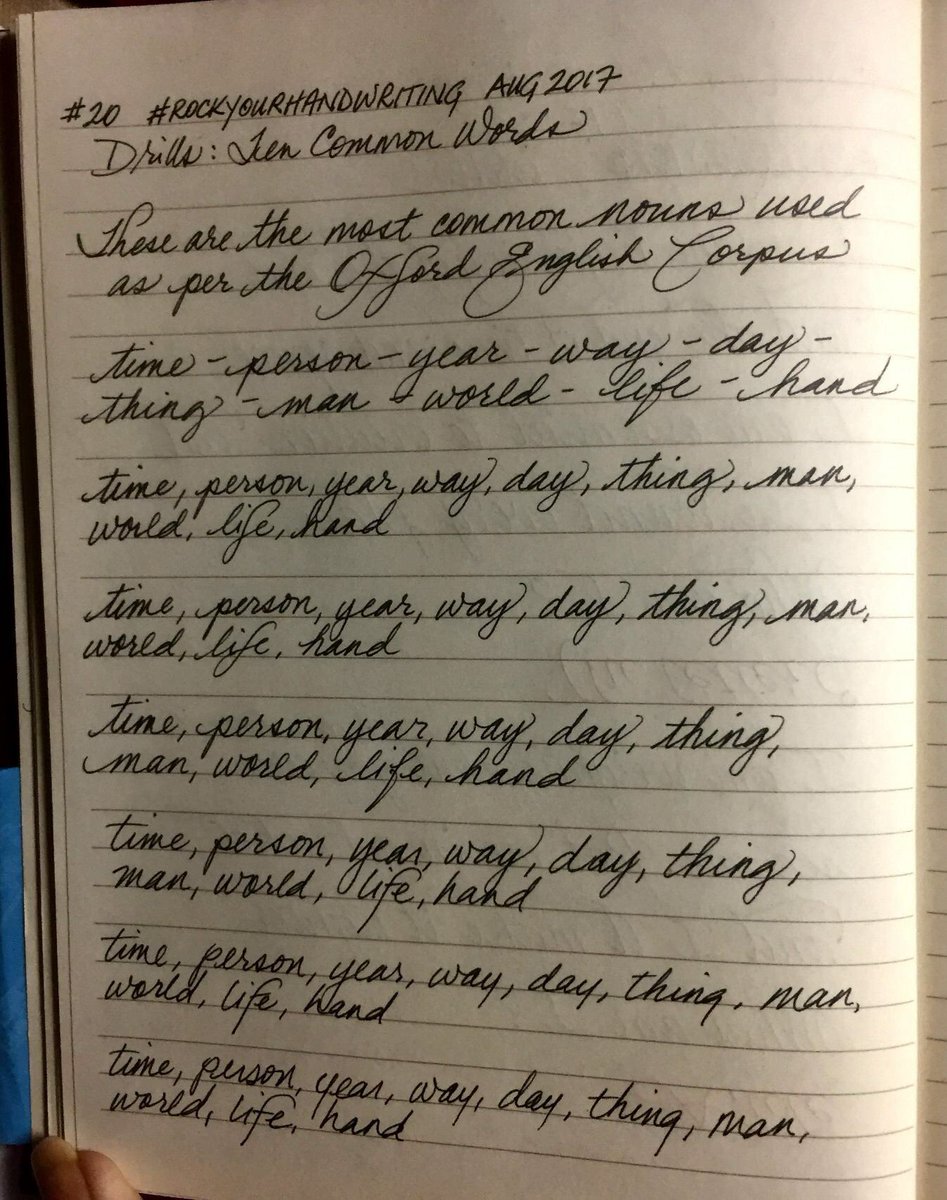 #20 #ROCKYOURHANDWRITING AUG 2017
Drills: Ten Common Words
These are the most common nouns used
as per the Oxford English Corpus
time - person - year - way - day -
thing - man - world - life - hand
time, person, year, way, day, thing, man,
world, life, hand
time, person, year, way, day, thing, man,
world, life, hand
time, person, year, way, day, thing,
man, world, life, hand
time, person, year, way, day, thing,
man, world, life, hand
time, person, year, way, day, thing, man,
world, life, hand
time, person, year, way, day, thing, man,
world, life, hand